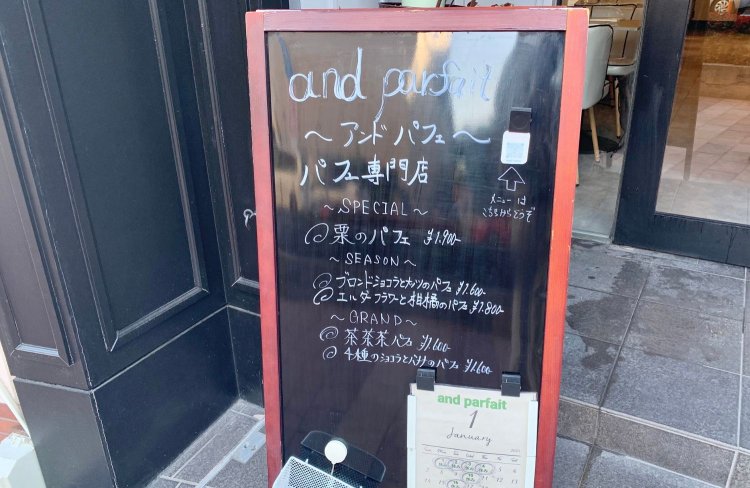 and parfait
～アンドパフェ～
パフェ専門店
メニューは
こちらからどうぞ
～SPECIAL～
栗のパフェ ¥1,900-
～SEASON～
ブロンドショコラとナッツのパフェ ¥1,600-
エルダーフラワーと柑橘のパフェ ¥1,800-
～GRAND～
茶茶茶パフェ ¥1,600-
4種のショコラとバナナのパフェ ¥1,600-
and parfait
1
January